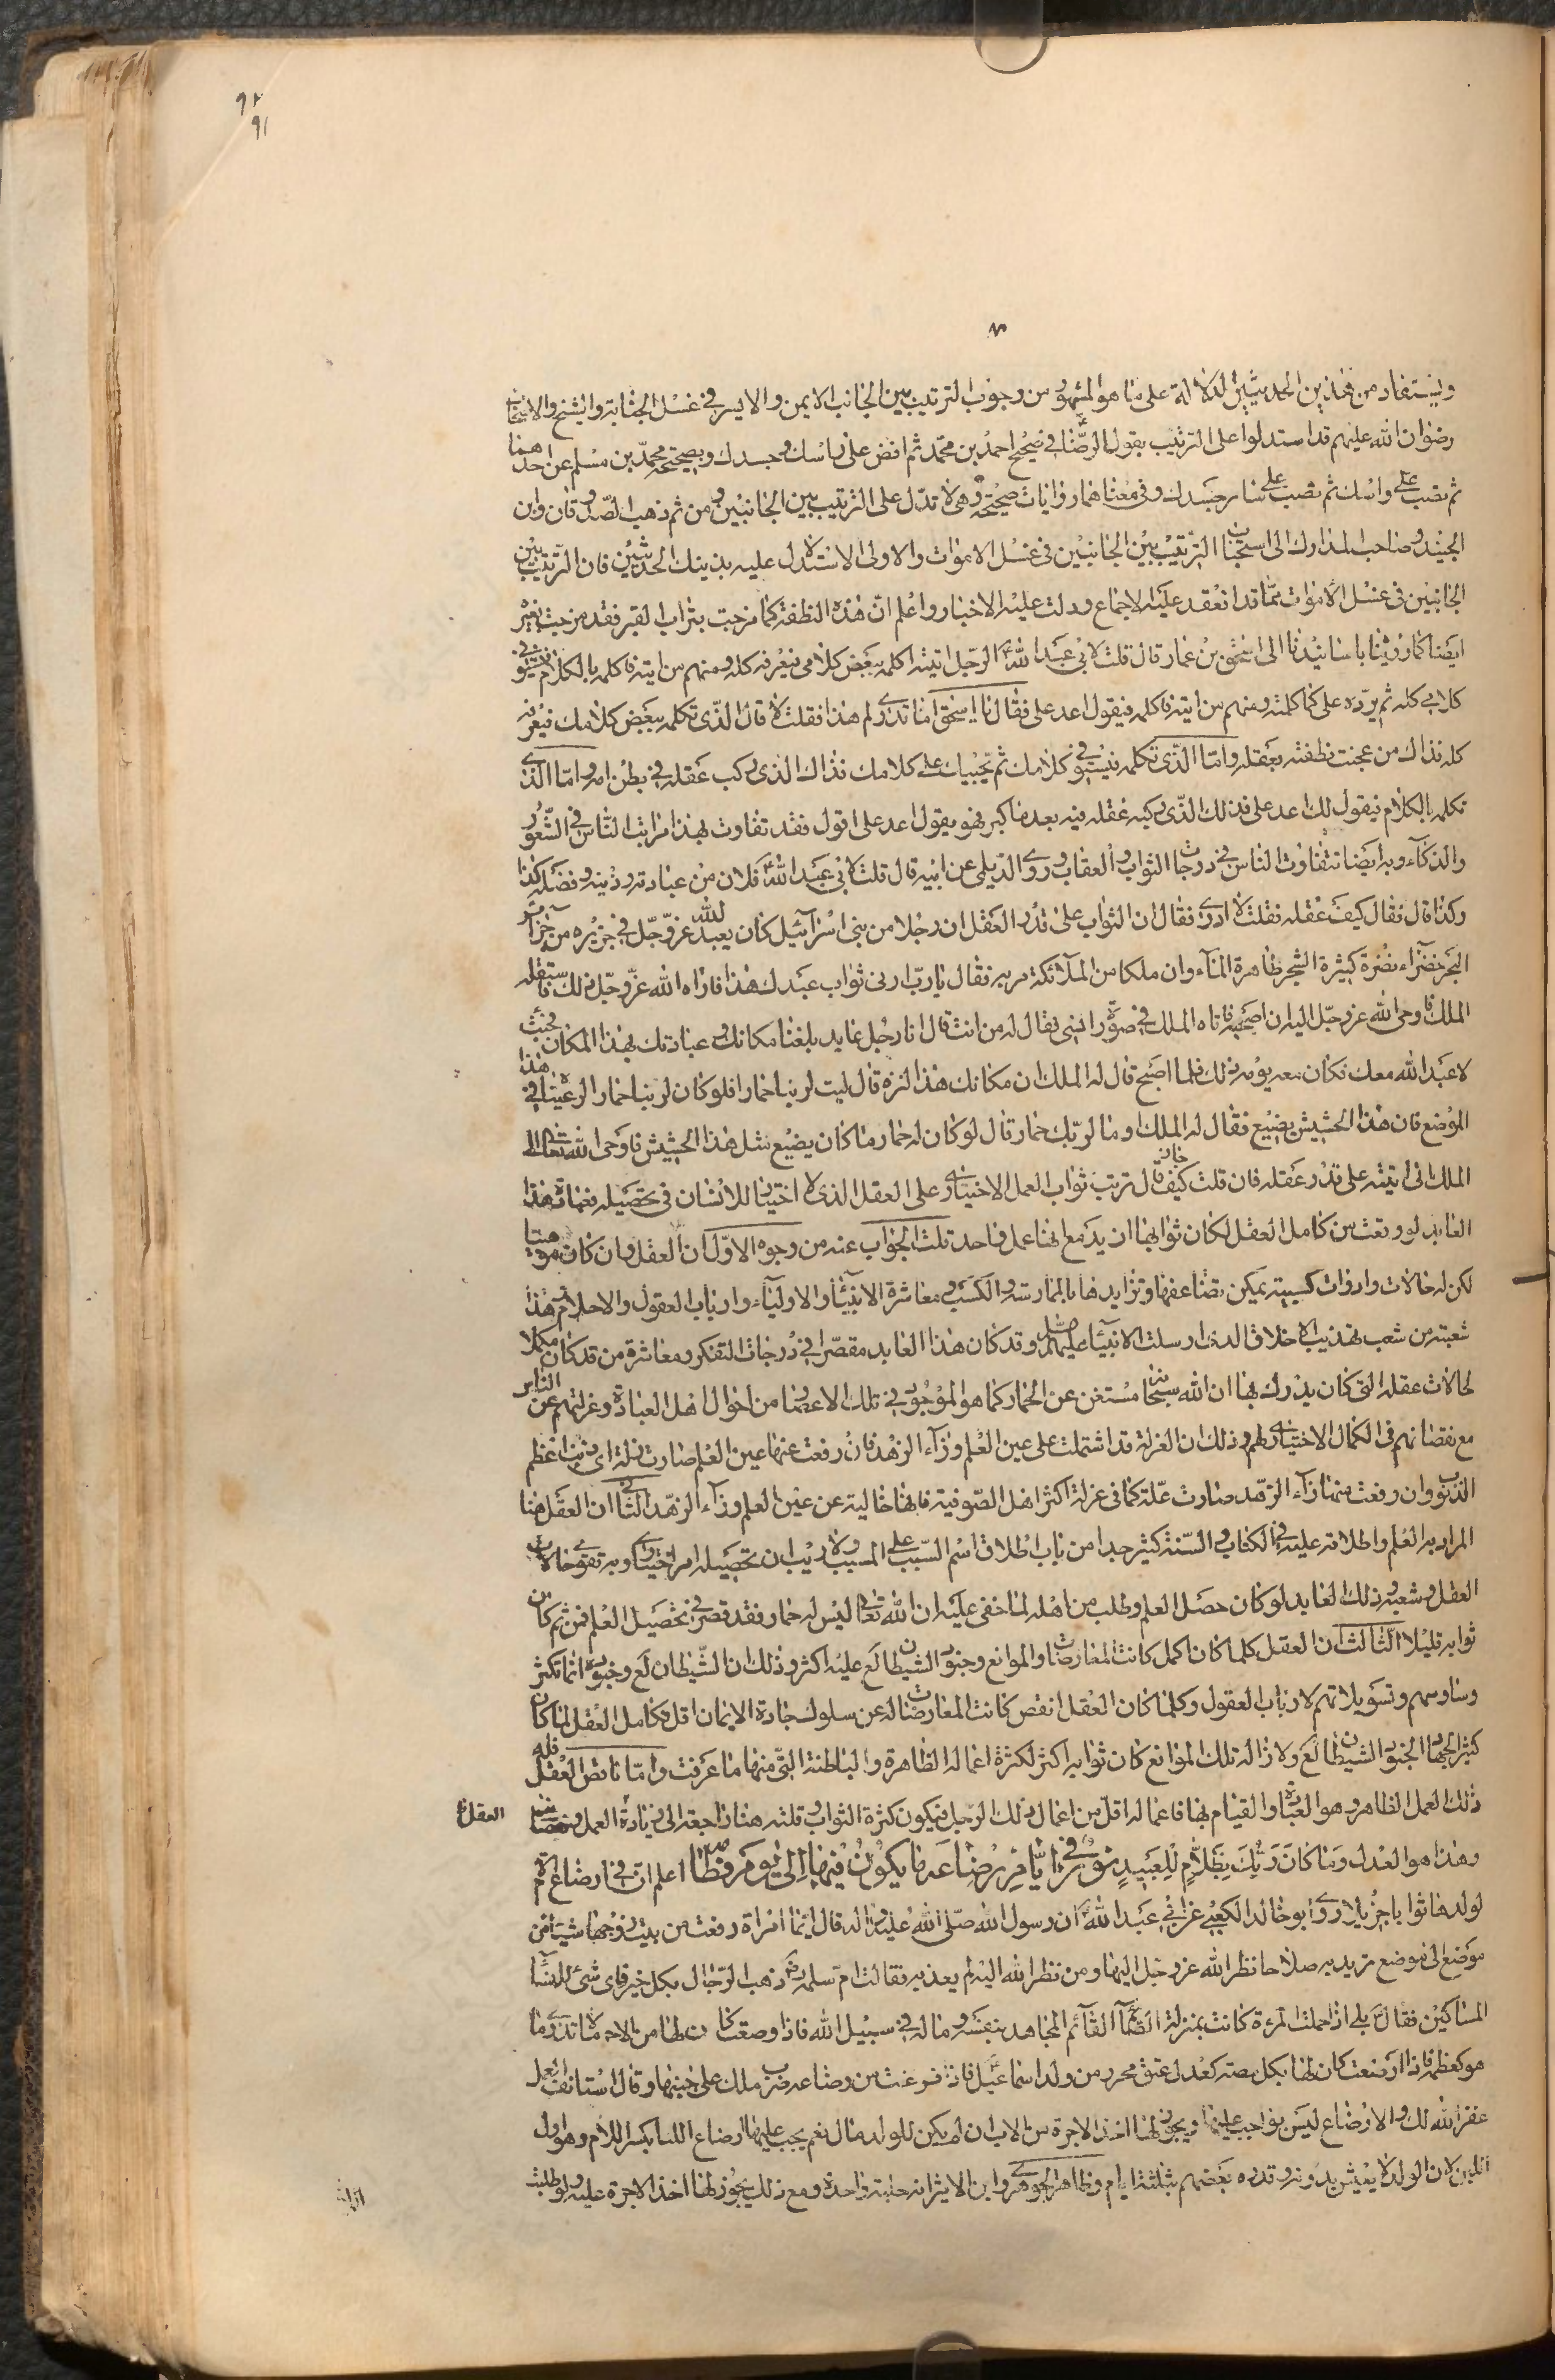 ٩٢
٩١
ويستفاد من هذين الحديثين الدلالة على ما هو المشهور من وجوب الترتيب بين الجانب الايمن والايسر في غسل الجنابة والشيخ والاتباع
رضوان الله عليهم قد استدلوا على الترتيب بقول الرضا ع في صحيح احمد بن محمد ثم افض على راسك وجسدك وبصحيحة محمد بن مسلم عن احدهما
ثم تصب على راسك ثم تصب على سائر جسدك وفي معناهما روايات صحيحة وهي لا تدل على الترتيب بين الجانبين ومن ثم ذهب الصدوقان وابن
الجنيد وصاحب المدارك الى استحباب الترتيب بين الجانبين في غسل الاموات والاولى الاستدلال عليه بذينك الحديثين فان الترتيب بين
الجانبين في غسل الاموات مما قد انعقد عليه الاجماع ودلت عليه الاخبار واعلم ان هذه النطفة كما مزجت بتراب القبر فقد مزجت بغيره
ايضا كما روينا باسانيدنا الى اسحق بن عمار قال قلت لابي عبد الله ع الرجل اتيته اكلمه ببعض كلامي فيعرفه كله ومنهم من اتيته فاكلمه بالكلام فيستوفي
كلامي كله ثم يرده على كما كلمته ومنهم من اتيته فاكلمه فيقول اعد على فقال يا اسحق اما تدري لم هذا فقلت لا قال الذي تكلمه ببعض كلامك فيعرفه
كله فذاك من عجنت نطفته بعقله واما الذي تكلمه فيستوفي كلامك ثم يجيبك على كلامك فذاك الذي ركب عقله في بطن امه واما الذي
تكلمه بالكلام فيقول لك اعد على فذلك الذي ركب عقله فيه بعد ما كبر فهو يقول اعد على اقول فقد تفاوت بهذا مراتب الناس في الشعور
والذكاء وبه ايضا تتفاوت الناس في درجات الثواب والعقاب وروى الديلمي عن ابيه قال قلت لابي عبد الله ع فلان من عبادته ودينه وفضله كذا
وكذا قال فقال كيف عقله فقلت لا ادري فقال ان الثواب على قدر العقل ان رجلا من بني اسرائيل كان يعبد الله عز وجل في جزيرة من جزائر
البحر خضراء نضرة كثيرة الشجر ظاهرة الماء وان ملكا من الملائكة مر به فقال يا رب ارني ثواب عبدك هذا فاراه الله عز وجل ذلك فاستقله
الملك فاوحى الله عز وجل اليه ان اصحبه فاتاه الملك في صورة انسي فقال له من انت قال انا رجل عابد بلغنا مكانك وعبادتك بهذا المكان فجئت
لاعبد الله معك فكان معه يومه ذلك فلما اصبح قال له الملك ان مكانك هذا لنزه قال ليت لربنا حمارا فلو كان لربنا حمارا لرعيناه في هذا
الموضع فان هذا الحشيش يضيع فقال له الملك وما لربك حمار قال لو كان له حمار ما كان يضيع مثل هذا الحشيش فاوحى الله تعالى الى
الملك اني اثبته على قدر عقله فان قلت كيف جاز ترتب ثواب العمل الاختياري على العقل الذي لا اختيار للانسان في تحصيله فعبادة هذا
العابد لو وقعت من كامل العقل لكان ثوابها ازيد مع انها عمل واحد قلت الجواب عنه من وجوه الاول ان العقل وان كان موهبيا
لكن له حالات وارادات كسبية يمكن تضاعفها وتزايدها بالممارسة والكسب ومعاشرة الانبياء والاولياء وارباب العقول والاحلام وهذا
شعبة من شعب تهذيب الاخلاق الذي ارسلت الانبياء عليهم السلام له وقد كان هذا العابد مقصرا في درجات التفكر ومعاشرة من قد كان مكملا
لحالات عقله التي كان يدرك بها ان الله سبحانه مستغن عن الحمار كما هو الموجود في تلك الاعصار من احوال اهل العبادة وعزلتهم عن الناس
مع نقصانهم في الكمال الاختياري لهم وذلك ان العزلة قد اشتملت على عين العلم وزاء الزهد فان رفعت عنها عين العلم صارت زلة اي ذنب اعظم
الذنوب وان رفعت منها زاء الزهد صارت علة كما في عزلة اكثر اهل الصوفية فانها خالية عن عين العلم وزاء الزهد الثاني ان العقل هنا
المراد به العلم واطلاقه عليه في الكتاب والسنة كثير جدا من باب اطلاق اسم السبب على المسبب ولا ريب ان تحصيله امر اختياري وبه تقوى حالات
العقل وشعبه وذلك العابد لو كان حصل العلم وطلب من اهله لما خفى عليه ان الله تعالى ليس له حمار فقد قصر في تحصيل العلم فمن ثم كان
ثوابه قليلا الثالث ان العقل كلما كان اكمل كانت المعارضات والموانع وجنود الشيطان لع عليه اكثر وذلك ان الشيطان لع وجنوده انما تكثر
وساوسهم وتسويلاتهم لارباب العقول وكلما كان العقل انقص كانت المعارضات له عن سلوك جادة الايمان اقل فكامل العقل لما كان
كثير الجهاد لجنود الشيطان لع ولازالة تلك الموانع كان ثوابه اكثر لكثرة اعماله الظاهرة والباطنة التي منها ما عرفت واما ناقص العقل فله
ذلك العمل الظاهر وهو العبادة والقيام بها فاعماله اقل من اعمال ذلك الرجل فيكون كثرة الثواب وقلته هنا راجعة الى زيادة العمل ونقصانه العقل
وهذا هو العدل وما كان ربك بظلام للعبيد نور في ايام رضاعه وما يكون فيها الى يوم فطامه اعلم ان في ارضاع الام
لولدها ثوابا جزيلا روى ابو خالد الكعبي عن ابي عبد الله ع ان رسول الله صلى الله عليه واله قال ايما امراة رفعت من بيت زوجها شيئا من
موضع الى موضع تريد به صلاحا نظر الله عز وجل اليها ومن نظر الله اليه لم يعذبه فقالت ام سلمة رض ذهب الرجال بكل خير فاي شئ للنساء
المساكين فقال بلى اذا حملت المرءة كانت بمنزلة الصائم القائم المجاهد بنفسه وماله في سبيل الله فاذا وضعت كان لها من الاجر ما لا تدري ما
هو لعظمه فاذا ارضعت كان لها بكل مصة كعدل عتق محرر من ولد اسماعيل فاذا فرغت من رضاعه ضرب ملك على جنبها وقال استانفي العمل
غفر الله لك والارضاع ليس بواجب عليها ويجوز لها اخذ الاجرة من الاب ان لم يكن للولد مال نعم يجب عليها ارضاع اللبا بكسر اللام وهو اول
اللبن لان الولد لا يعيش بدونه وقدره بعضهم بثلثة ايام وظاهر الجوهري وابن الاثير انه حلبة واحدة ومع ذلك يجوز لها اخذ الاجرة عليه ولو طلبت